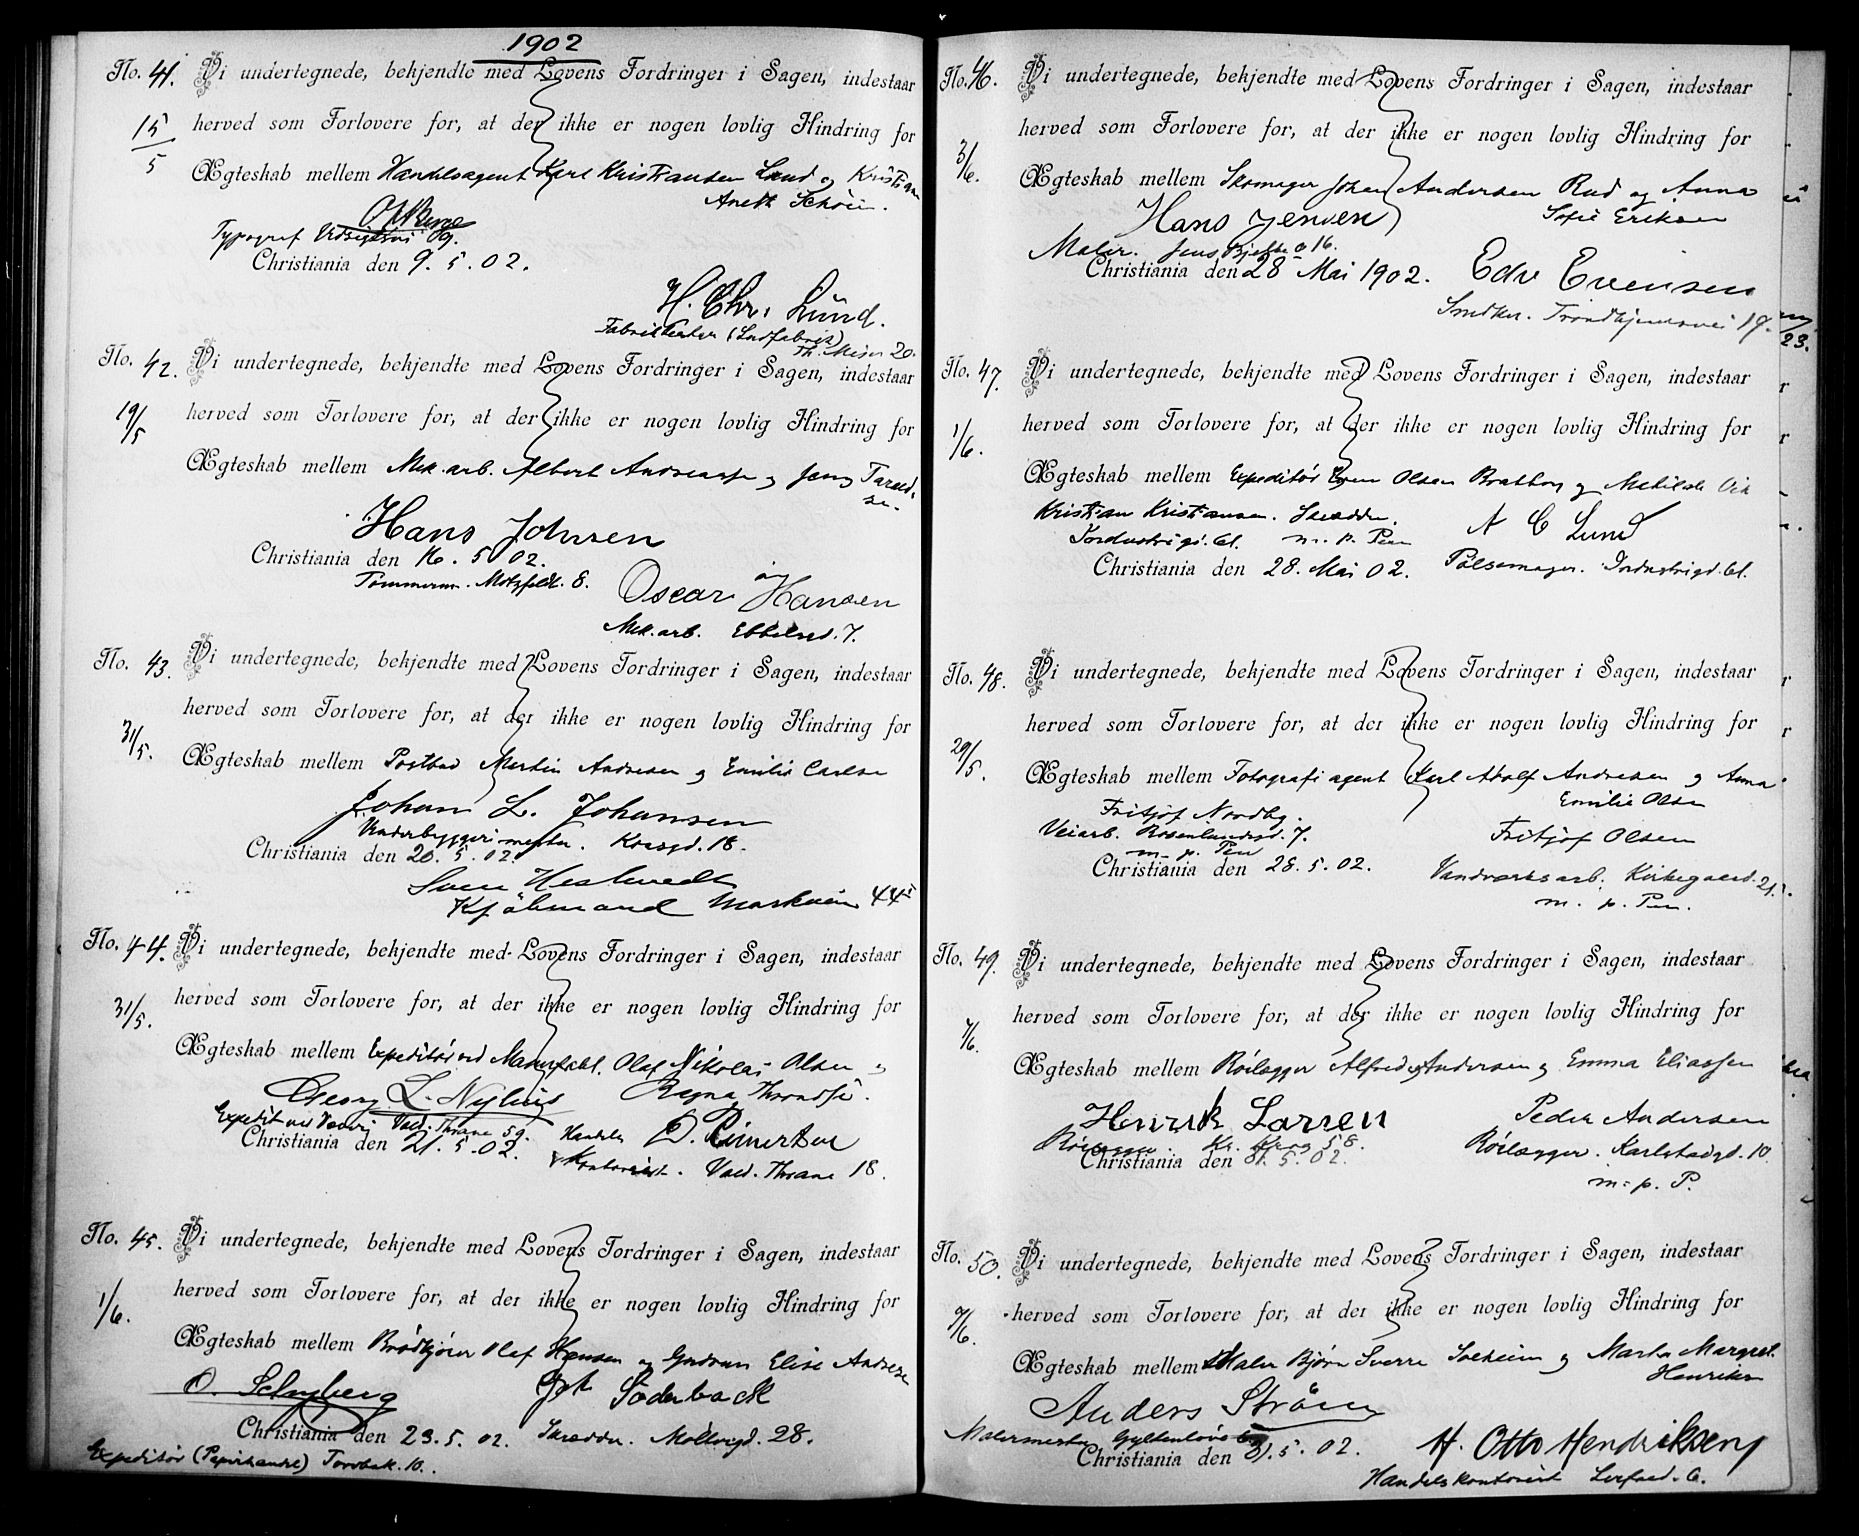 1902
No. 41. Vi undertegnede, bekjendte med Lovens Fordringer i Sagen, indestaar
15/5 herved som Forlovere for, at der ikke er nogen lovlig Hindring for
Ægteskab mellem Handelsagent Karl Kristiansen Lund og Kristian
Aneth Schøien.
Typograf
Christiania den 9. 5. 02.
H. Chr. Lund.
(Ludfabrik)
Th. Meier 20.
No. 42. Vi undertegnede, bekjendte med Lovens Fordringer i Sagen, indestaar
19/5 herved som Forlovere for, at der ikke er nogen lovlig Hindring for
Ægteskab mellem Mek. arb. Albert Andreassen og Jenny
Hans Johnsen
Christiania den 16. 5 02.
Tømmerm. Motzfeldt. 8.
Oscar Hansen
Mek. arb. Ebbelsed. 7.
No. 43. Vi undertegnede, bekjendte med Lovens Fordringer i Sagen, indestaar
herved som Forlovere for, at der ikke er nogen lovlig Hindring for
31/5. Ægteskab mellem Postbud Martin Andresen og Emilie Carlsen
Johan L. Johansen
mester. Korsgd. 18.
Christiania den 20. 5. 02.
Sven
Kjøbmand Markveien 44
No. 44. Vi undertegnede, bekjendte med Lovens Fordringer i Sagen, indestaar
31/5. herved som Forlovere for, at der ikke er nogen lovlig Hindring for
Ægteskab mellem Expeditør ved Manufakt. Olaf Nikolai Olsen og
Georg L. Nylius Ragna Throndsen.
Expedit ved Vald. Thrane 59.
Christiania den 21. 5. 02. D. Reinertsen
Kontorist. Vald. Thrane 18.
No. 45. Vi undertegnede, bekjendte med Lovens Fordringer i Sagen, indestaar
1/6. herved som Forlovere for, at der ikke er nogen lovlig Hindring for
Ægteskab mellem Brødkjører Olaf Hansen og Gudrun Elise Andresen
O. Söderback
Christiania den 23. 5. 02. Skrædder. Møllergd. 28.
Expeditør (Papirhandel) Torvbak. 10.
No. 46. Vi undertegnede, bekjendte med Lovens Fordringer i Sagen, indestaar
3/6. herved som Forlovere for, at der ikke er nogen lovlig Hindring for
Ægteskab mellem Skomager Johan Andersen Rud og Anna
Sofie Eriksen
Hans Jensen
Maler. Jens Bjelke g 16.
Christiania den 28 Mai 1902.
Edv Evensen
Snedker. Trondhjemsvei 19.
23.
No. 47. Vi undertegnede, bekjendte med Lovens Fordringer i Sagen, indestaar
1/6. herved som Forlovere for, at der ikke er nogen lovlig Hindring for
Ægteskab mellem Expeditør Even Olsen Bratberg og Mathilde
Kristian Kristiansen. Skrædder. A C Lund
Industrigd. 61. m. p. Pen
Christiania den 28. Mai 02. Pølsemager. Industrigd. 61.
No. 48. Vi undertegnede, bekjendte med Lovens Fordringer i Sagen, indestaar
herved som Forlovere for, at der ikke er nogen lovlig Hindring for
29/5. Ægteskab mellem Fotografiagent Karl Adolf Andresen og Anna
Emilie Olsen
Fritjof Nordbg.
Veiarb. Rosenlundsgd. 7. Fritjof Olsen
m. p. Pen
Christiania den 28. 5. 02. Vandværksarb. Kirkegaard. 21.
m. p. Pen.
No. 49. Vi undertegnede, bekjendte med Lovens Fordringer i Sagen, indestaar
7/6. herved som Forlovere for, at der ikke er nogen lovlig Hindring for
Ægteskab mellem Rørlægger Alfred Andersen og Emma Eliassen
Henrik Larsen Peder Andersen
Rørlægger Kr. Krog 58. Rørlægger. Karlstadgd. 10.
Christiania den 31. 5. 02.
m. p. P.
No. 50. Vi undertegnede, bekjendte med Lovens Fordringer i Sagen, indestaar
7/6. herved som Forlovere for, at der ikke er nogen lovlig Hindring for
Ægteskab mellem Maler Bjørn Sverre Solheim og Martha Margret.
Henriksen
Anders Strøm
Malermester Gyldenløves
Christiania den 31. 5. 02. H. Otto Hendriksen
Handelskontorist 6.